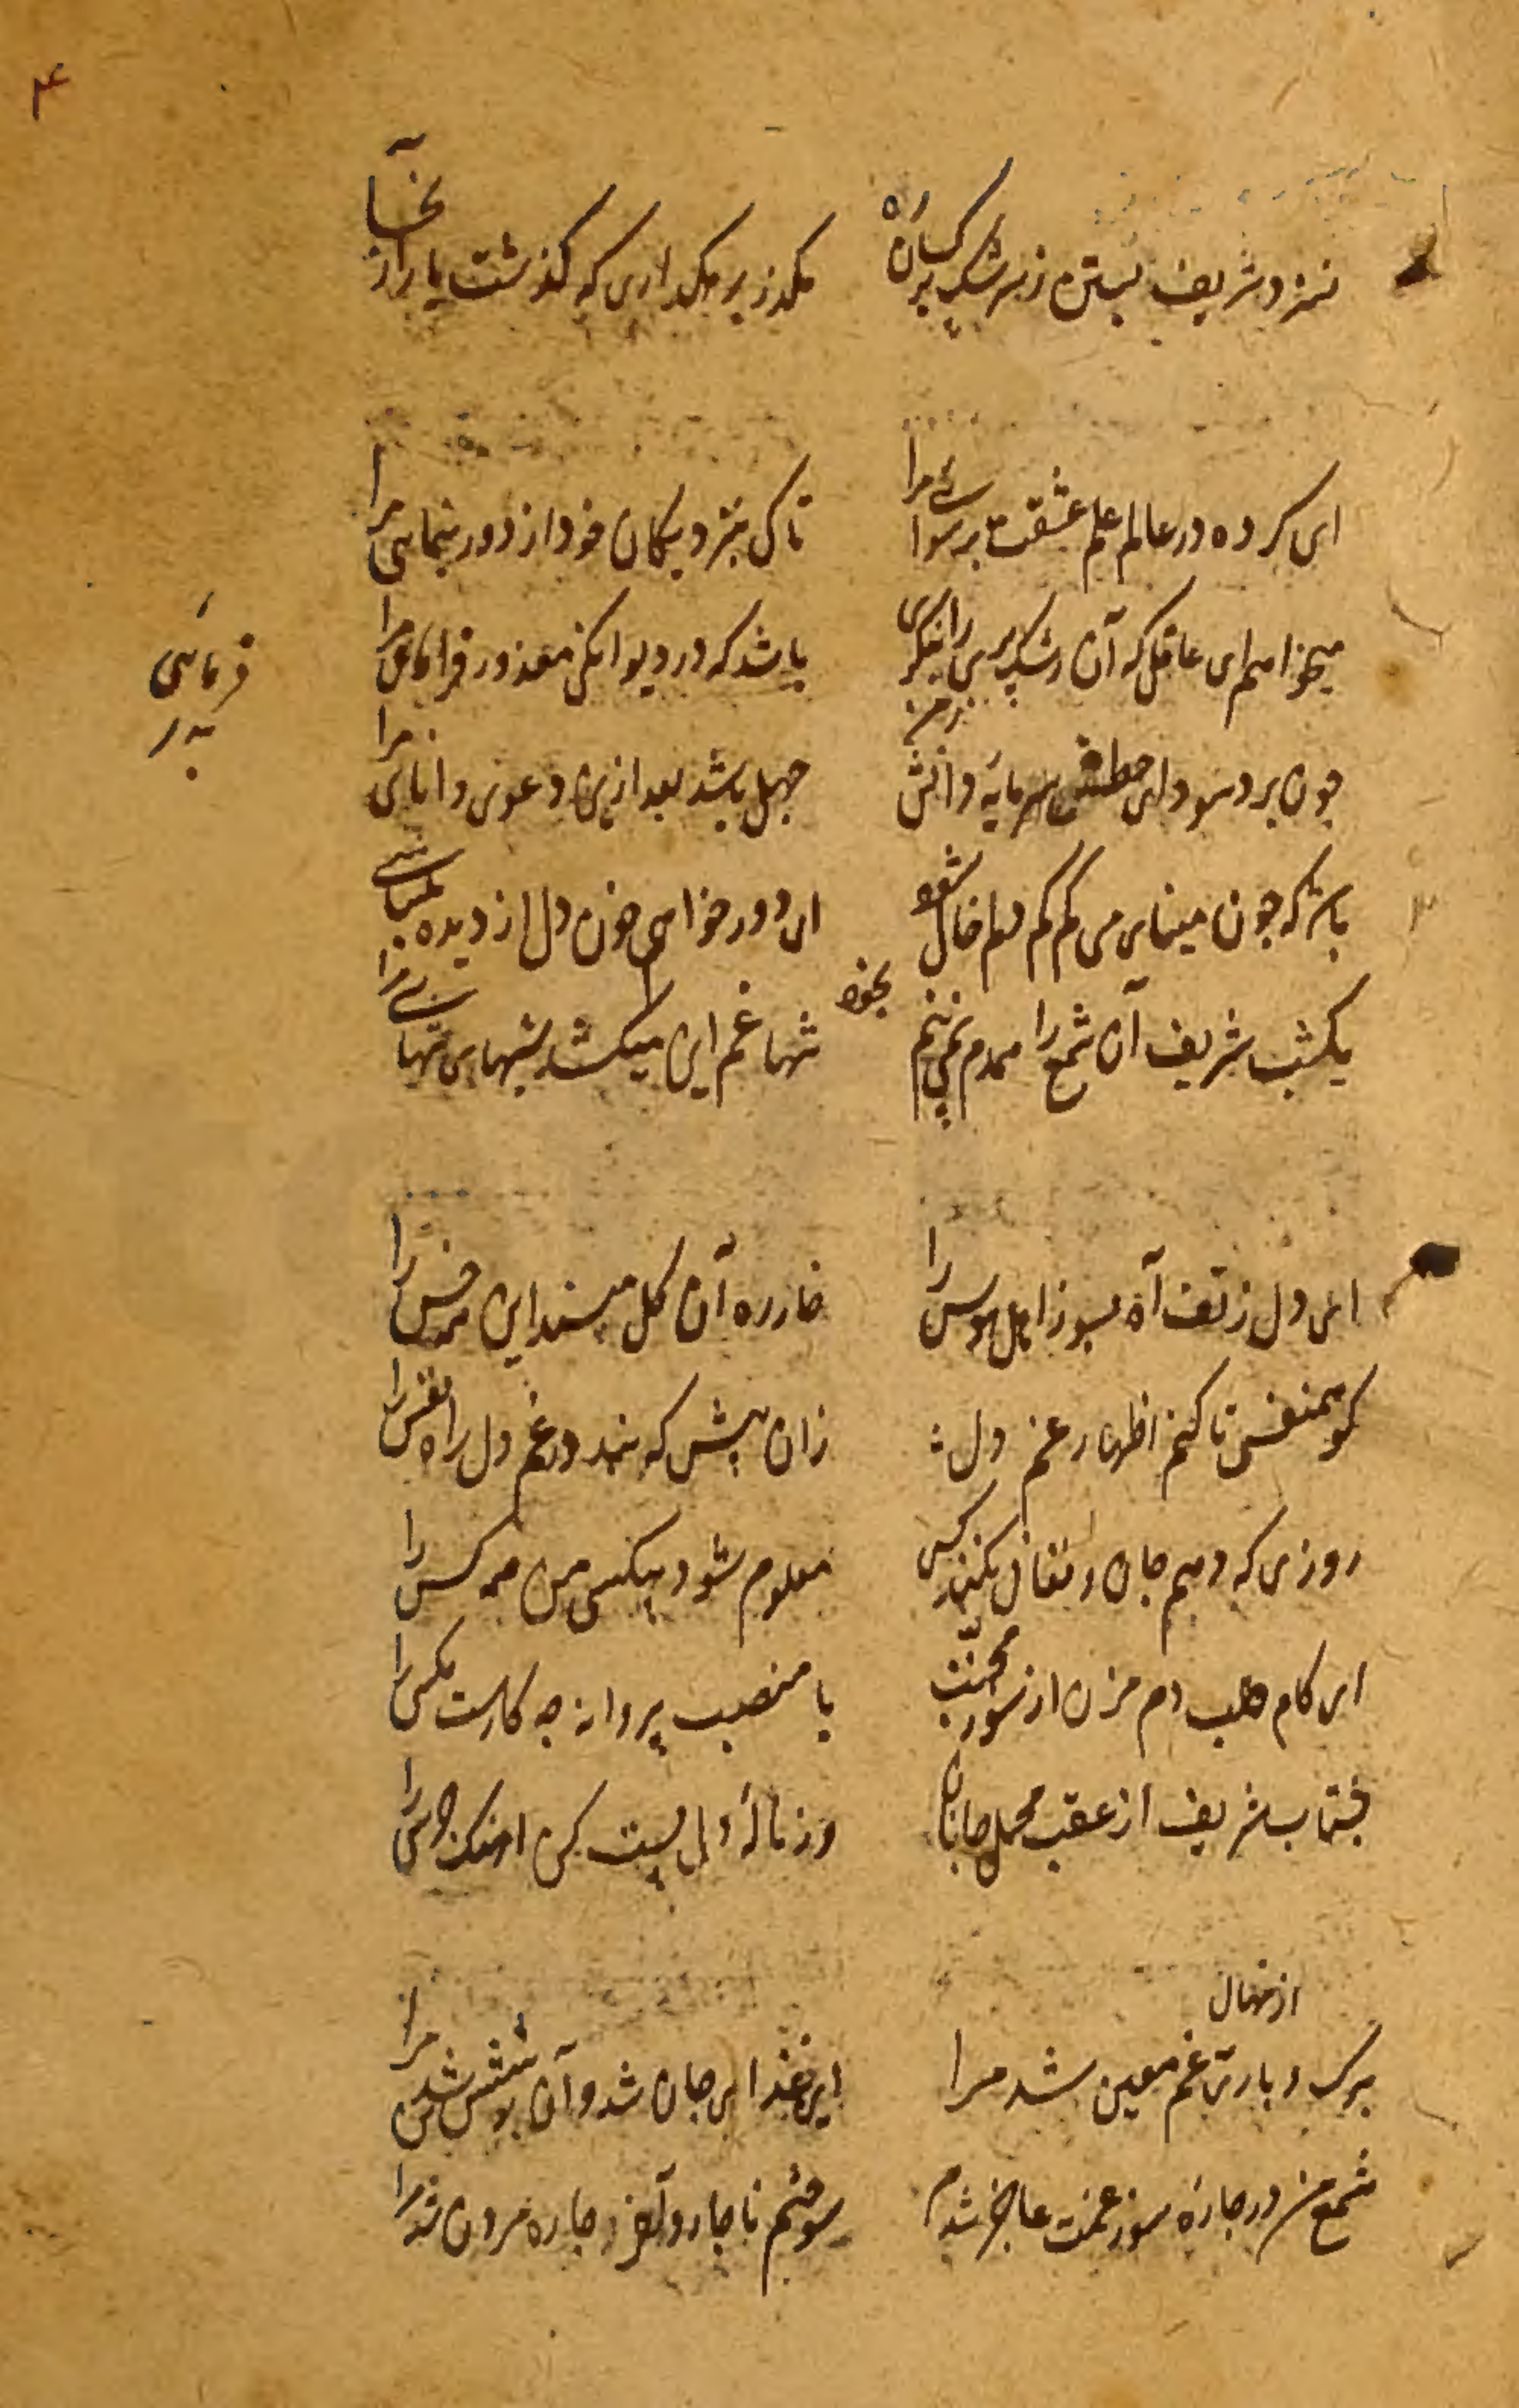 ۴
شریف بسته ز سرشک بر کسان راه
مگذر بر که گذشت یار از آنجا
ای کرده در عالم علم عشقت برسوائی مرا
تا کی بنزدیکان خود از دور بنمایی مرا
میخواهم ای عاقل که آن رشک پری را بنگری
باشد که در دیوانگی معذور فرمائی مرا
فرمائی
چون برد سودای خطش از من سرمایه دانش
جهل باشد بعد ازین دعوی دانائی مرا
باشد که چون مینای می کم کم دلم خالی شود
ای دور خواهی خون دل از دیده
یکشب شریف آن شمع را همدم نمی بینم بخود
شبها غم این میکشد شبهای تنهائی مرا
ای دل ز تف آه بسوز اهل هوس را
خار ره آن گل مپسند این همه خس را
کو همنفسی تا کنم اظهار غم دل
زان پیش که بندد غم دل راه نفس را
روزی که دهم جان و فغان نکند کس
معلوم شود بیکسی من همه کس را
ای کام طلب دم مزن از سوز محبت
با منصب پروانه چه کارست مگس را
بشتاب شریف از عقب محمل جانان
وز نالهٔ دل پست کن آهنگ جرس را
از نهال
برگ و بار غم معین شد مرا
این غذای جان شد و آن پوشش تن شد مرا
شمع من در چارهٔ سوز غمت عاجز شدم
سوختم ناچار و آخر چاره مردن شد مرا